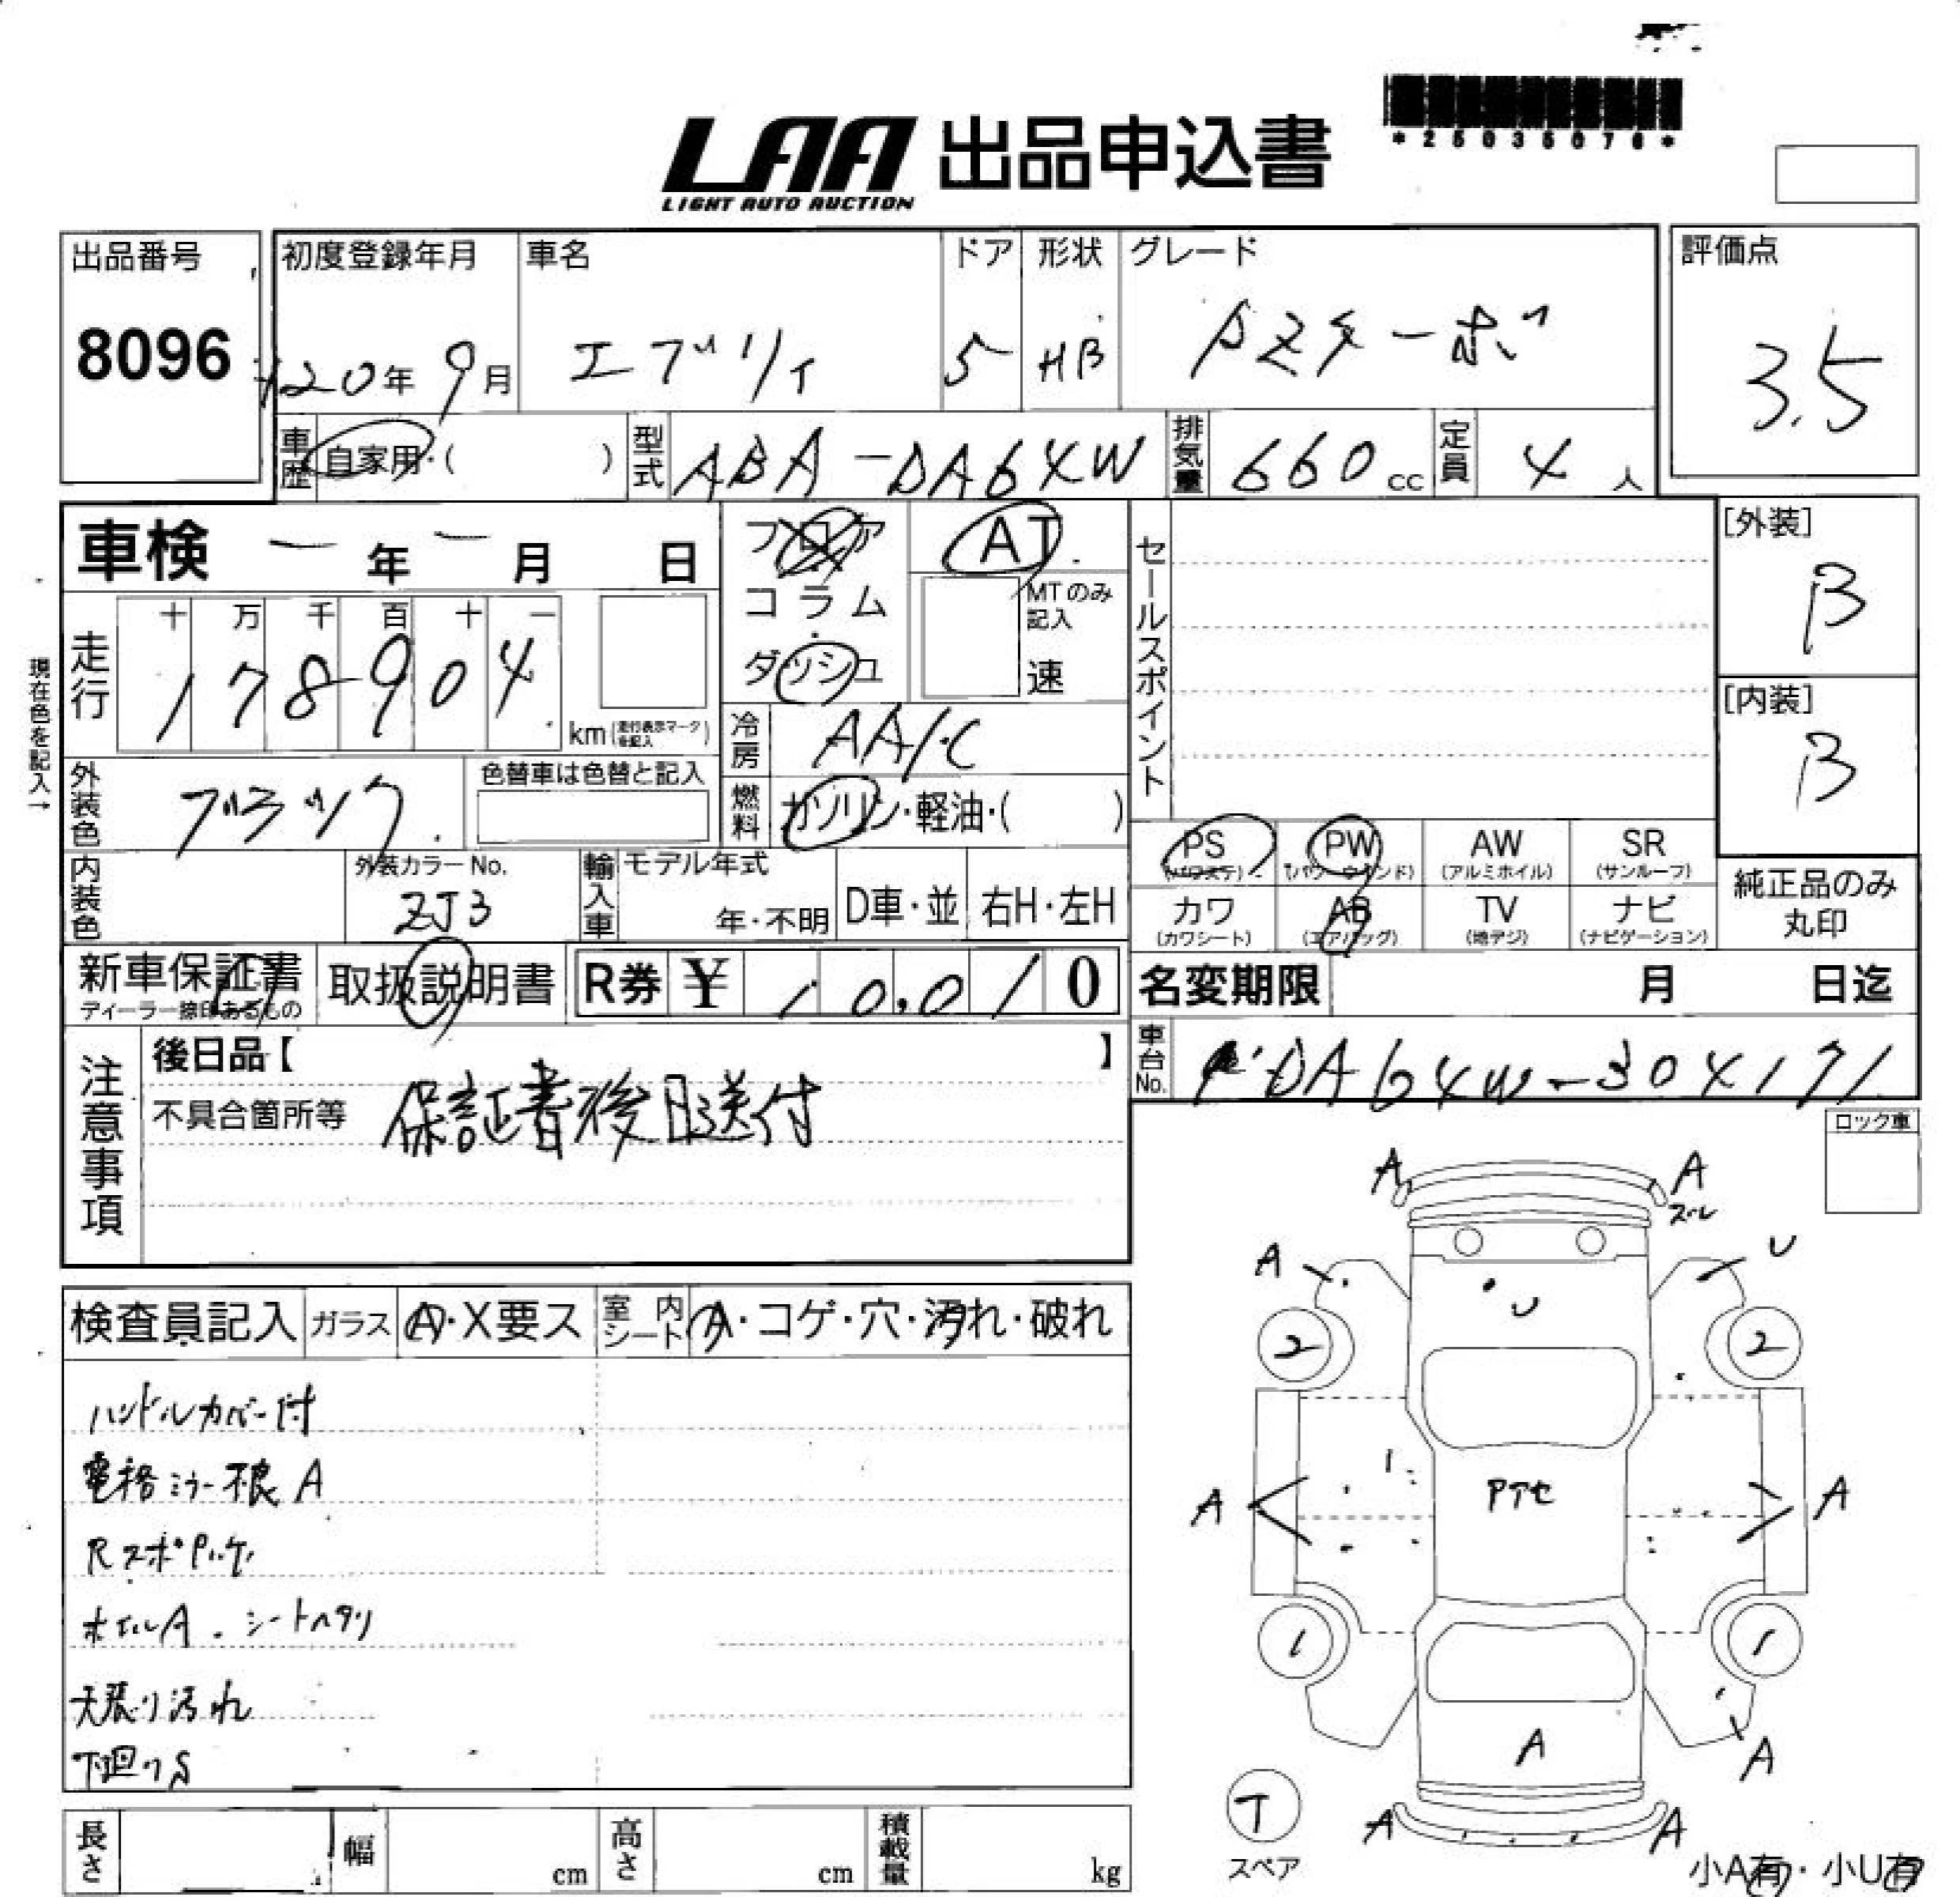 LAA 出品申込書
LIGHT AUTO AUCTION
*25035076*
出品番号
8096
初度登録年月
H20年 9月
車名
エブリィ
ドア
5
形状
HB
グレード
PZターボ
評価点
3.5
車歴 自家用・( )
型式 ABA-DA64W
排気量 660 cc
定員 4 人
車検 ー 年 ー 月 日
フロア
コラム
ダッシュ
AT
MTのみ記入
速
セールスポイント
[外装]
B
[内装]
B
現在色を記入→
走行
十 万 千 百 十 一
1 7 8 9 0 4
km (走行表示マークを記入)
冷房 AA/C
燃料 ガソリン・軽油・( )
外装色 ブラック
色替車は色替と記入
PS (パワステ)
PW (パワーウインド)
AW (アルミホイル)
SR (サンルーフ)
カワ (カワシート)
AB (エアバッグ)
TV (地デジ)
ナビ (ナビゲーション)
純正品のみ丸印
内装色
外装カラーNo.
ZJ3
輸入車
モデル年式
年・不明
D車・並
右H・左H
新車保証書
ディーラー捺印あるもの
取扱説明書
R券 ¥ 10,010
名変期限 月 日迄
車台No. DA64W-304171
注意事項
後日品【 】
不具合箇所等 保証書後日送付
ロック車
検査員記入
ガラス A・X要ス
室内シート A・コゲ・穴・汚れ・破れ
ハンドルカバー付
電格ミラー不良 A
Rスポ
ホイルA.シートヘタリ
天張り汚れ
下廻りS
A
A
スレ
A
U
U
2
2
A
A
Pアセ
1
1
A
A
T
スペア
A
A
小A有・小U有
長さ
幅 cm
高さ cm
積載量 kg